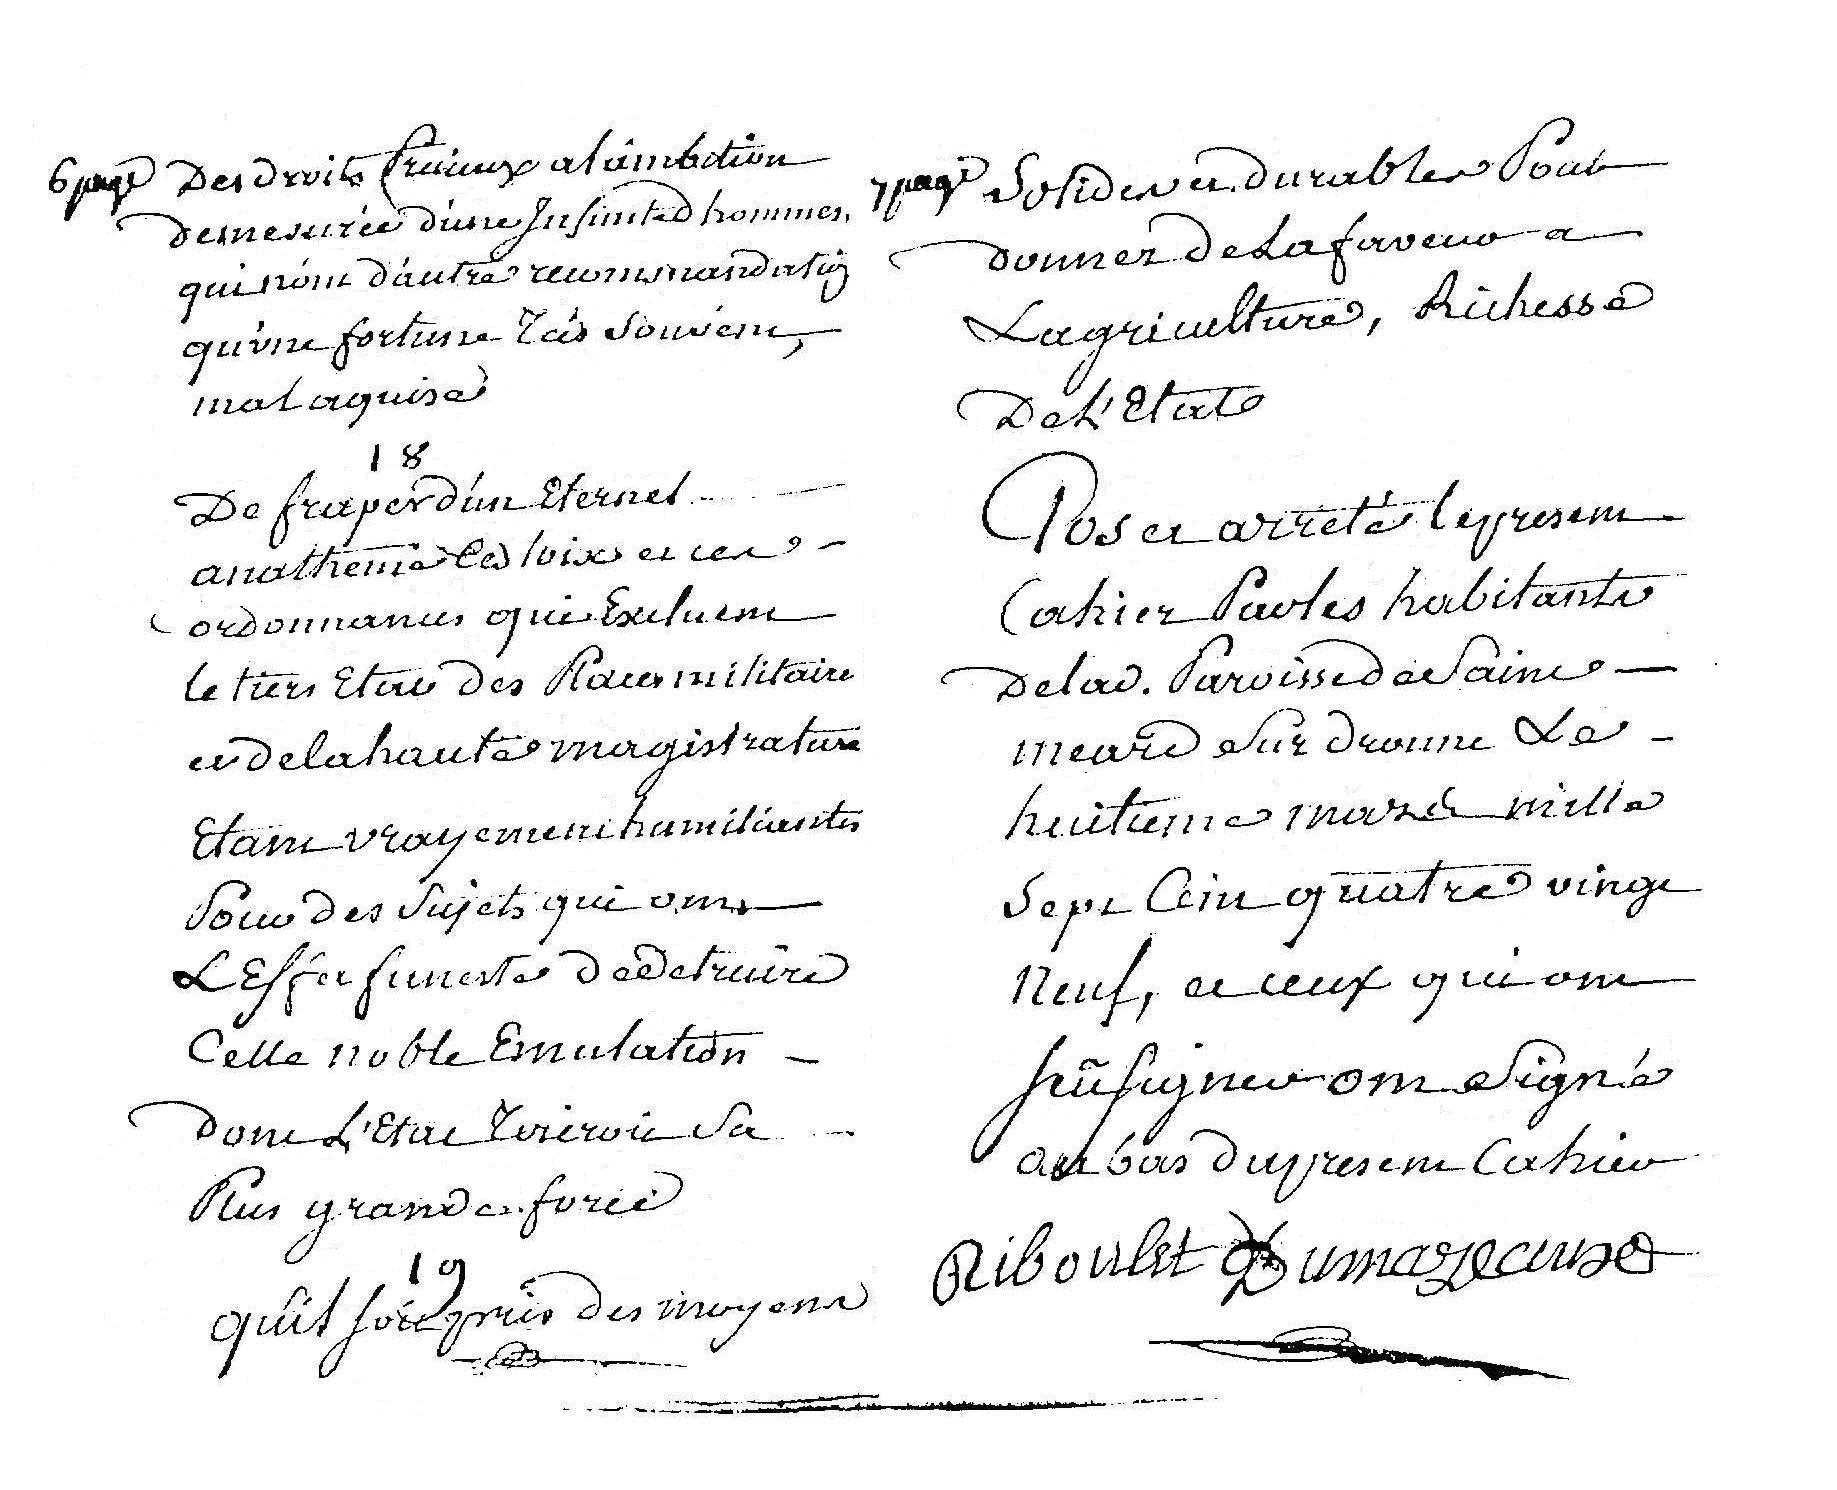 6 page Des droits précieux a l'ambition
demesurée d'une Infinité d'hommes,
qui n'ont d'autre recommandation
qu'une fortune très souvent,
mal aquise
18
De fraper d'un Eternel
anatheme Ces loix et ces
ordonnances qui Excluent
le tiers Etat des Places militaire
et de la haute magistrature
Etant vrayement humiliantes
Pour des Sujets qui ont
L'Effet funeste de Detruire
Cette noble Emulation
Dont L'Etat Tireroit Sa
Plus grande force
19
qu'il soit pris des moyens
7 page Solides et durables Pour
donner de La faveur a
Lagriculture, Richesse
De L'Etat
Pos et arreté le present
Cahier Par les habitants
De lad. Paroisse de Saint
meard Sur dronne Le
huitieme mars mille
Sept Cent quatre vingt
Neuf, et ceux qui ont
sçu signer ont Signé
au bas du present Cahier
Riboulet Dumazeause